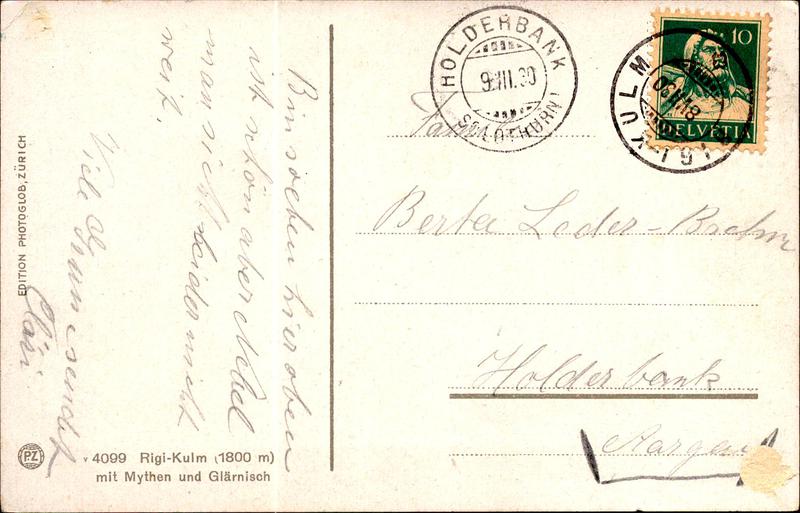 Bin soeben hier oben
ist schön aber Nebel
man sieht leider nicht
weit.
Viele Grüsse sendet
Cläri
EDITION PHOTOGLOB, ZÜRICH
PZ
v 4099 Rigi-Kulm (1800 m)
mit Mythen und Glärnisch
HOLDERBANK
9.III.30
(SOLOTHURN)
10
HELVETIA
KULM
RIGI
Berta Leder-
Holderbank
Aargau